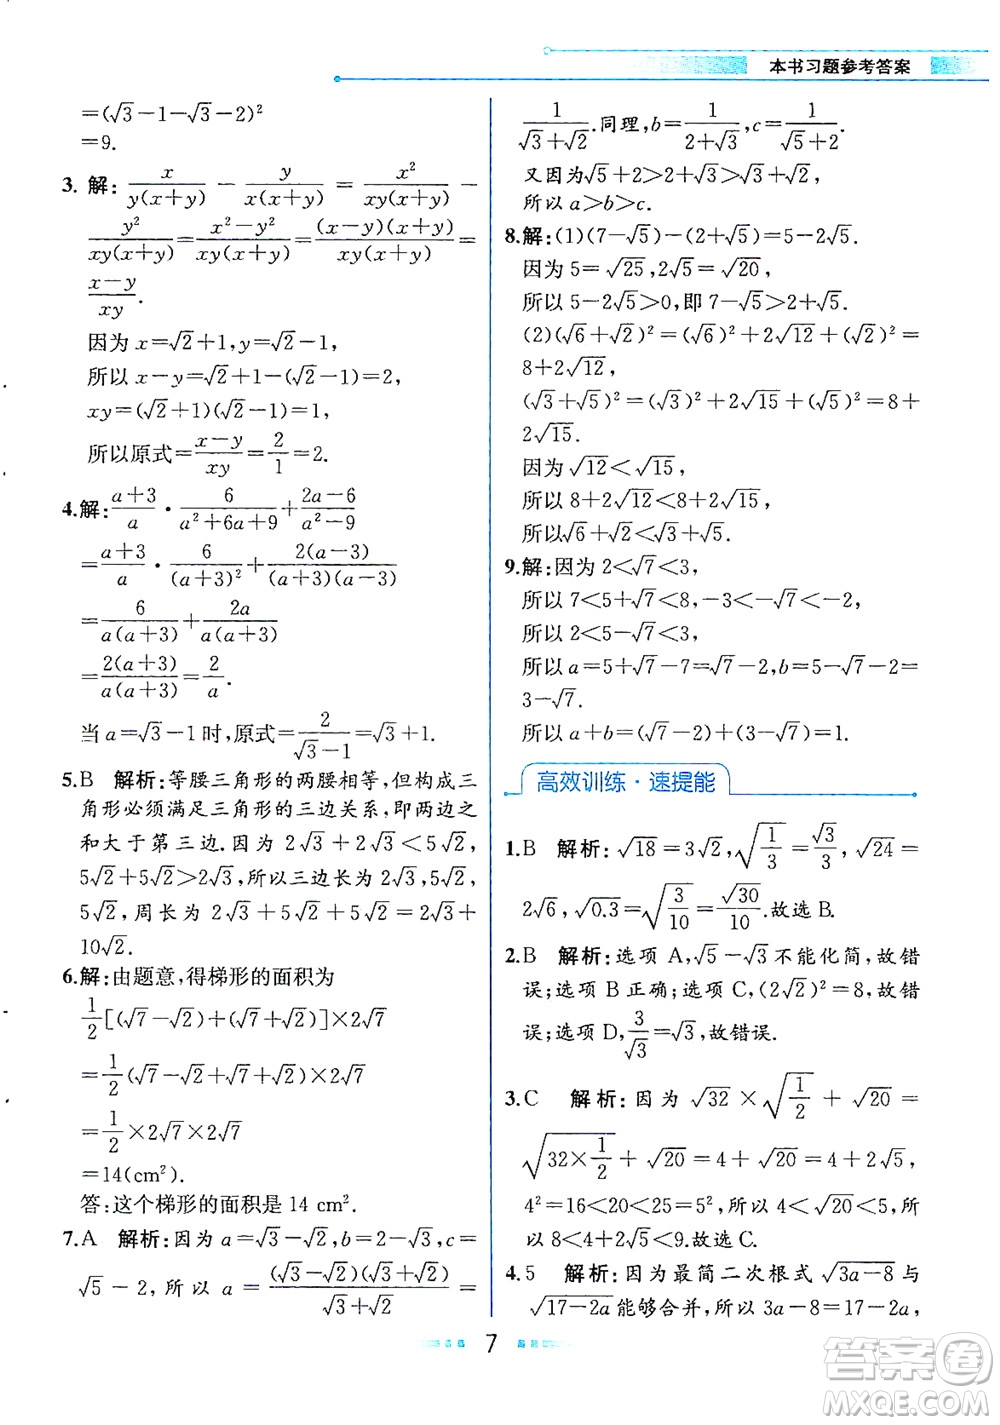 本书习题参考答案
=(√3-1-√3-2)²
=9.
3. 解: x/y(x+y) - y/x(x+y) = x²/xy(x+y) -
y²/xy(x+y) = x²-y²/xy(x+y) = (x-y)(x+y)/xy(x+y) =
x-y/xy.
因为 x=√2+1,y=√2-1,
所以 x-y=√2+1-(√2-1)=2,
xy=(√2+1)(√2-1)=1,
所以原式=x-y/xy=2/1=2.
4.解: a+3/a · 6/a²+6a+9 + 2a-6/a²-9
= a+3/a · 6/(a+3)² + 2(a-3)/(a+3)(a-3)
= 6/a(a+3) + 2a/a(a+3)
= 2(a+3)/a(a+3) = 2/a.
当 a=√3-1时,原式=2/√3-1=√3+1.
5.B 解析:等腰三角形的两腰相等,但构成三
角形必须满足三角形的三边关系,即两边之
和大于第三边.因为 2√3+2√3<5√2,
5√2+5√2>2√3,所以三边长只能为2√3,
5√2,5√2,周长为2√3+5√2+5√2=2√3+
10√2.
6.解:由题意,得梯形的面积为
1/2[(√7-√2)+(√7+√2)]×2√7
=1/2(√7-√2+√7+√2)×2√7
=1/2×2√7×2√7
=14(cm²).
答:这个梯形的面积是14 cm².
7.A 解析:因为 a=√3-√2,b=2-√3,c=
√5-2,所以 a=(√3-√2)(√3+√2)/√3+√2=
1/√3+√2.同理,b=1/2+√3,c=1/√5+2.
又因为√5+2>2+√3>√3+√2,
所以 a>b>c.
8.解:(1)(7-√5)-(2+√5)=5-2√5.
因为 5=√25,2√5=√20,
所以 5-2√5>0,即 7-√5>2+√5.
(2)(√6+√2)²=(√6)²+2√12+(√2)²=
8+2√12,
(√3+√5)²=(√3)²+2√15+(√5)²=8+
2√15.
因为 √12<√15,
所以 8+2√12<8+2√15,
所以√6+√2<√3+√5.
9.解:因为 2<√7<3,
所以 7<5+√7<8,-3<-√7<-2,
所以 2<5-√7<3,
所以 a=5+√7-7=√7-2,b=5-√7-2=
3-√7.
所以 a+b=(√7-2)+(3-√7)=1.
高效训练·速提能
1.B 解析:√18=3√2,√1/3=√3/3,√24=
2√6,√0.3=√3/10=√30/10.故选 B.
2.B 解析:选项 A,√5-√3不能化简,故错
误;选项 B 正确;选项 C,(2√2)²=8,故错
误;选项 D,3/√3=√3,故错误.
3.C 解析:因为 √32×√1/2+√20=
√32×1/2+√20=√16+√20=4+√20,
4²=16<20<25=5²,所以 4<√20<5,所
以 8<4+√20<9.故选 C.
4.5 解析:因为最简二次根式 √3a-8与
√17-2a能够合并,所以 3a-8=17-2a,
7
答案圈
MXQE.COM